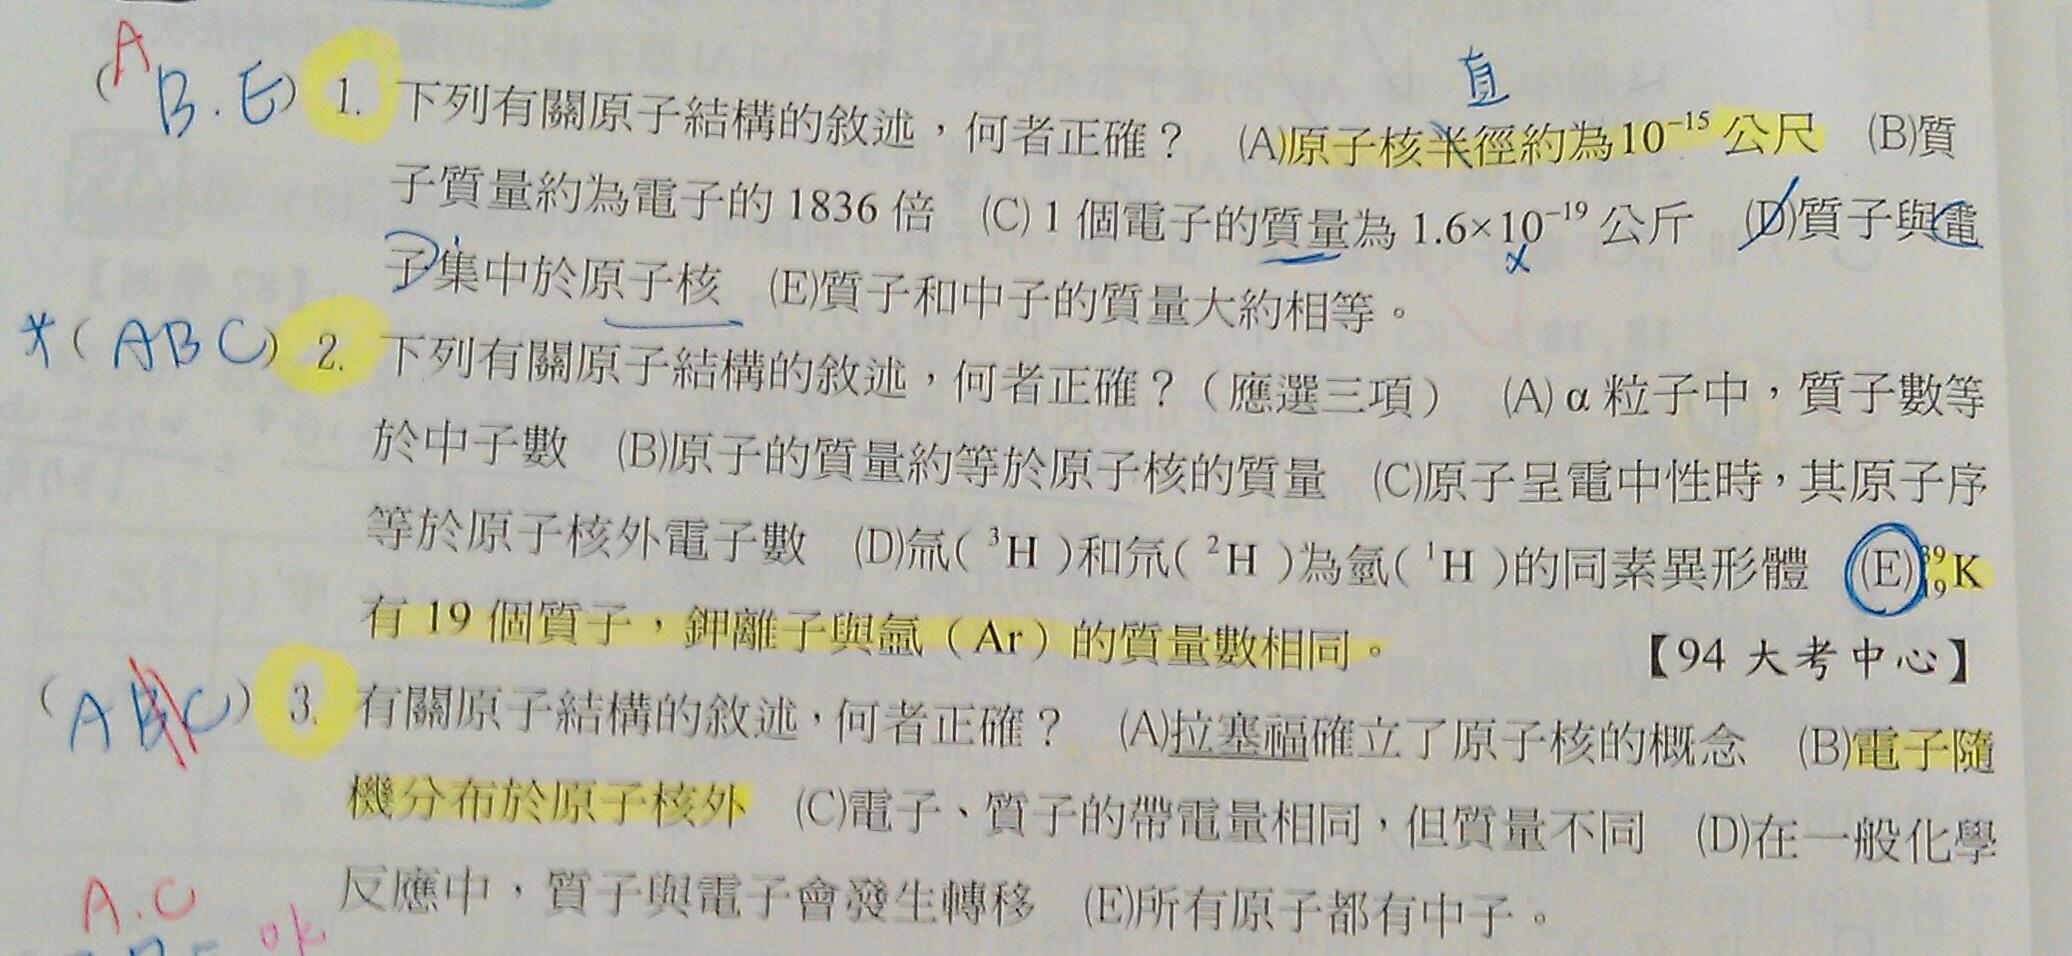 直
(A B.E) 1. 下列有關原子結構的敘述，何者正確？ (A)原子核半徑約為10⁻¹⁵公尺 (B)質
子質量約為電子的 1836 倍 (C) 1 個電子的質量為 1.6×10⁻¹⁹ 公斤 (D)質子與電
子集中於原子核 (E)質子和中子的質量大約相等。
*(ABC) 2. 下列有關原子結構的敘述，何者正確？（應選三項） (A) α 粒子中，質子數等
於中子數 (B)原子的質量約等於原子核的質量 (C)原子呈電中性時，其原子序
等於原子核外電子數 (D)氚( ³H )和氘( ²H )為氫( ¹H )的同素異形體 (E)³⁹₁₉K
有 19 個質子，鉀離子與氬（Ar）的質量數相同。 【94 大考中心】
(ABC) 3. 有關原子結構的敘述，何者正確？ (A)拉塞福確立了原子核的概念 (B)電子隨
機分布於原子核外 (C)電子、質子的帶電量相同，但質量不同 (D)在一般化學
反應中，質子與電子會發生轉移 (E)所有原子都有中子。
A.C
ok